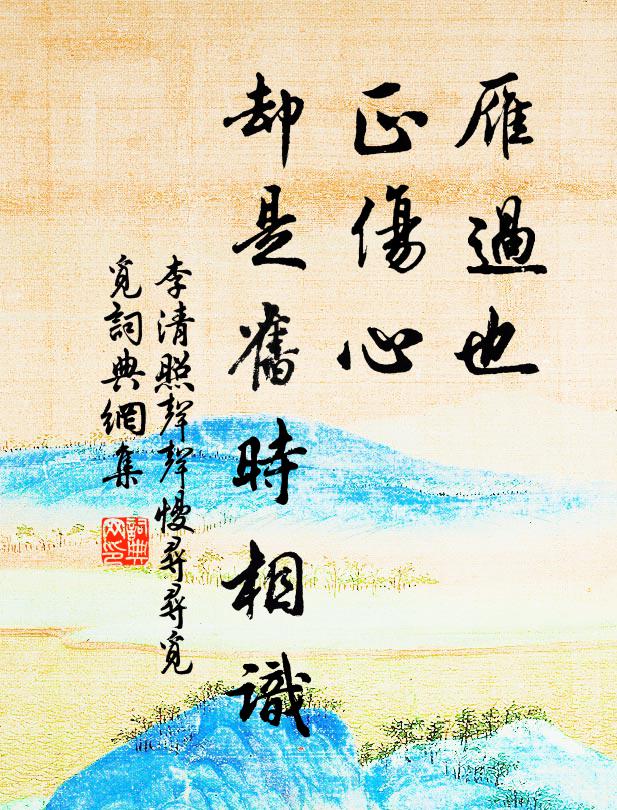 雁過也
正傷心
却是舊時相識
李清照聲聲慢尋尋覓
覓詞典網集
詞典
网印